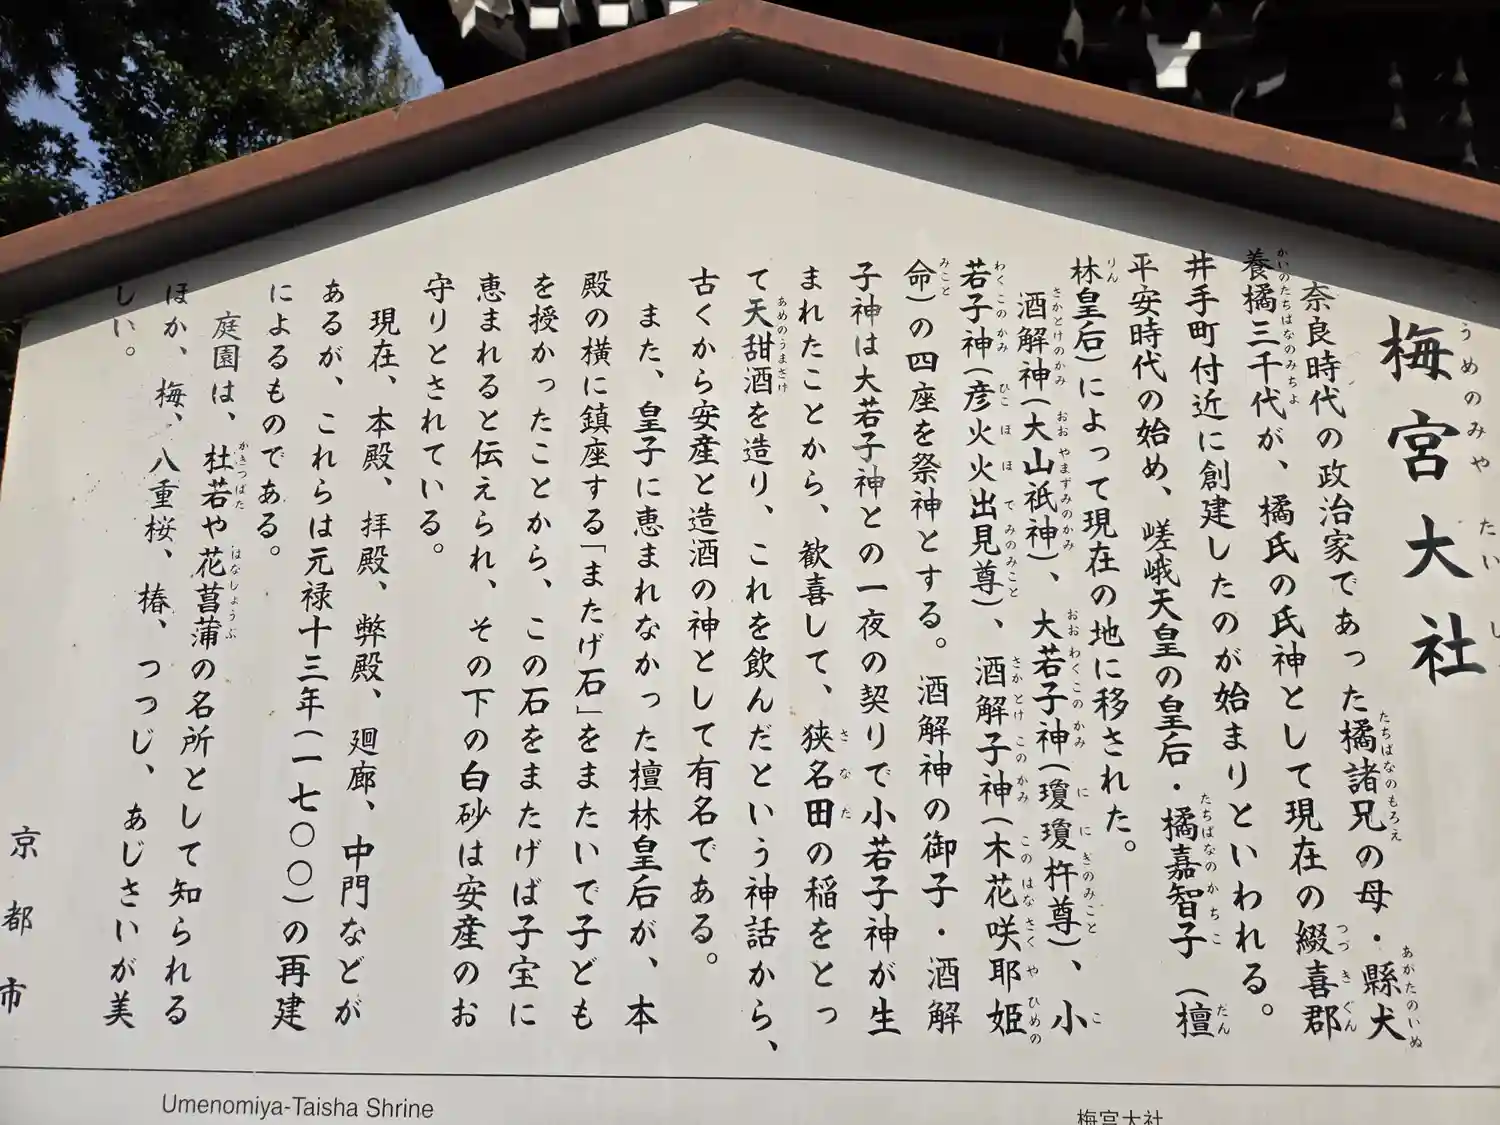 梅宮大社
奈良時代の政治家であった橘諸兄の母・縣犬
養橘三千代が、橘氏の氏神として現在の綴喜郡
井手町付近に創建したのが始まりといわれる。
平安時代の始め、嵯峨天皇の皇后・橘嘉智子（檀
林皇后）によって現在の地に移された。
酒解神（大山祇神）、大若子神（瓊瓊杵尊）、小
若子神（彦火火出見尊）、酒解子神（木花咲耶姫
命）の四座を祭神とする。酒解神の御子・酒解
子神は大若子神との一夜の契りで小若子神が生
まれたことから、歓喜して、狭名田の稲をとっ
て天甜酒を造り、これを飲んだという神話から、
古くから安産と造酒の神として有名である。
また、皇子に恵まれなかった檀林皇后が、本
殿の横に鎮座する「またげ石」をまたいで子ども
を授かったことから、この石をまたげば子宝に
恵まれると伝えられ、その下の白砂は安産のお
守りとされている。
現在、本殿、拝殿、弊殿、廻廊、中門などが
あるが、これらは元禄十三年（一七〇〇）の再建
によるものである。
庭園は、杜若や花菖蒲の名所として知られる
ほか、梅、八重桜、椿、つつじ、あじさいが美
しい。
京都市
Umenomiya-Taisha Shrine
梅宮大社